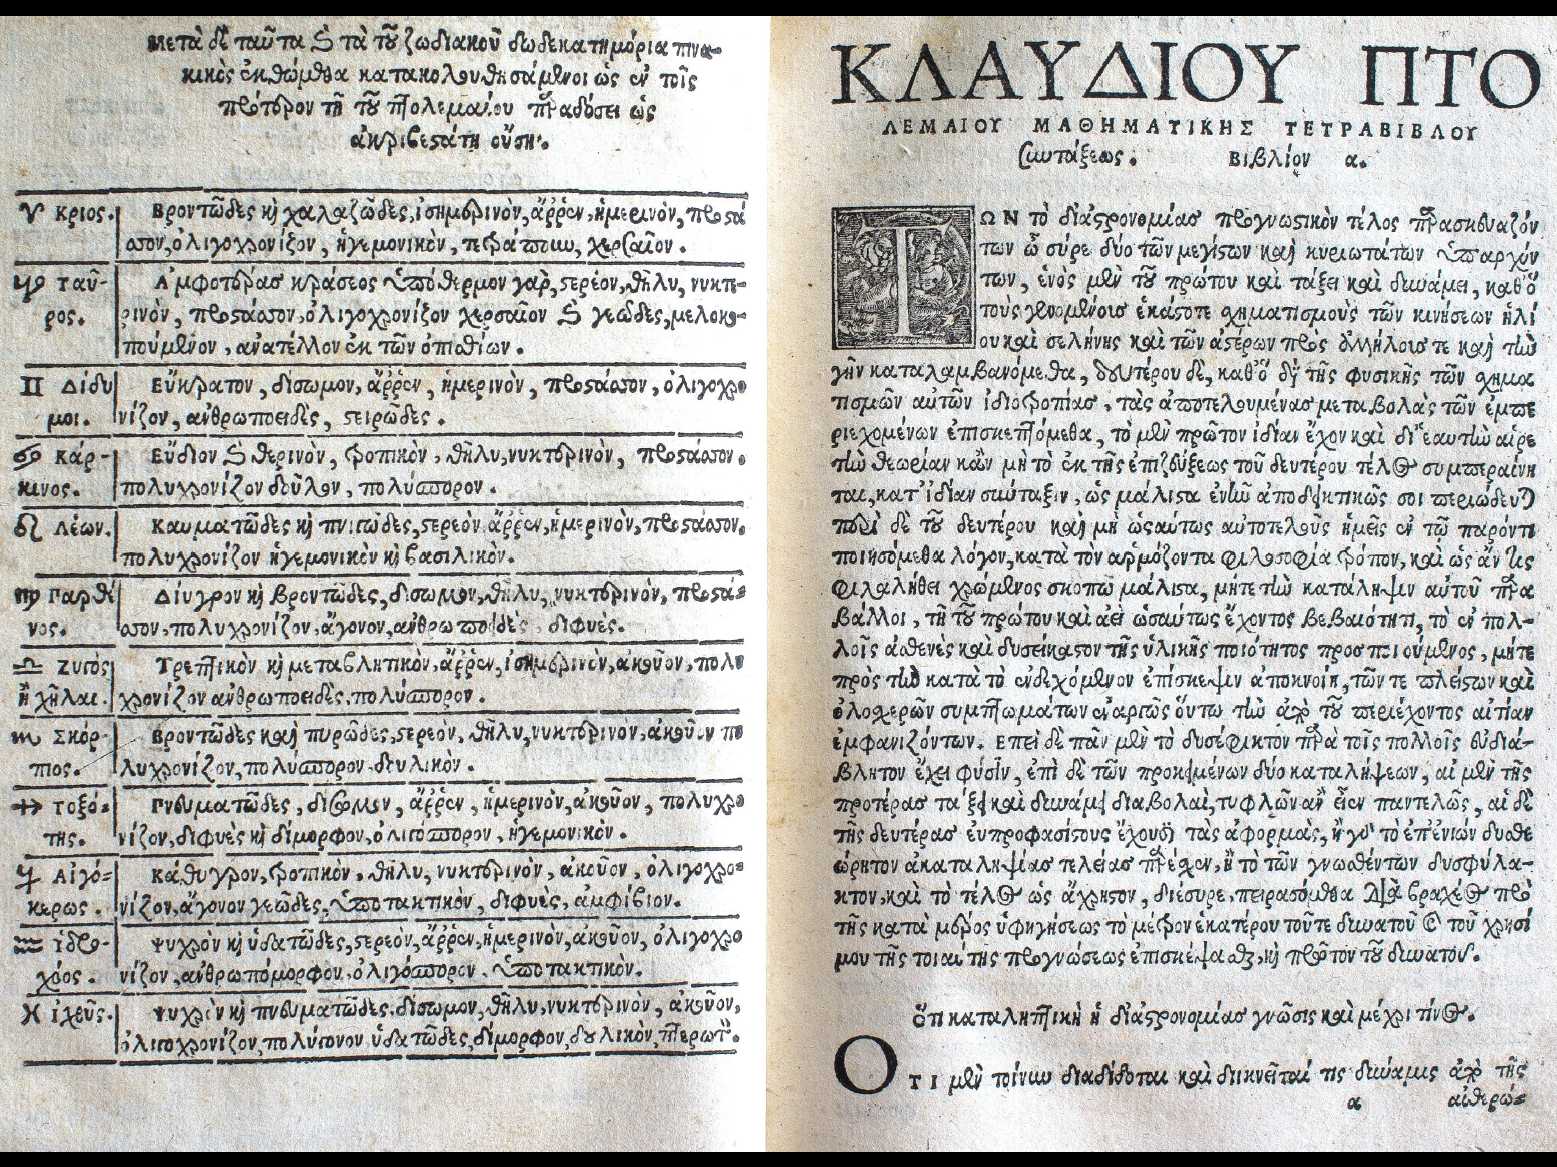 Μετὰ δὲ ταῦτα καὶ τὰ τοῦ ζωδιακοῦ δωδεκατημόρια πινα-
κικῶς ἐκθώμεθα κατακολουθησάμενοι ὡς ἐν τοῖς
πρότερον τῇ τοῦ Πτολεμαίου παραδόσει ὡς
ἀκριβεστάτῃ οὔσῃ.
♈ Κριος. Βροντῶδες καὶ χαλαζῶδες, ἰσημερινὸν, ἄῤῥεν, ἡμερινὸν, προστά
σσον, ὀλιγοχρονίζον, ἡγεμονικὸν, τετράπουν, χερσαῖον.
♉ Ταῦ- Ἀμφοτέρας κράσεος ὑπόθερμον γὰρ, στερέον, θῆλυ, νυκτε-
ρος. ρινὸν, προστάσσον, ὀλιγοχρονίζον χερσαῖον καὶ γεῶδες, μελοκο-
πούμενον, ἀνατέλλον ἐκ τῶν ὀπισθίων.
♊ Δίδυ Εὔκρατον, δίσωμον, ἄῤῥεν, ἡμερινὸν, προστάσσον, ὀλιγοχρο
μοι. νίζον, ἀνθρωποειδὲς, στειρῶδες.
♋ Κάρ- Εὔδιον καὶ θερινὸν, τροπικὸν, θῆλυ, νυκτερινὸν, προστάσσον,
κινος. πολυχρονίζον δοῦλον, πολύσπορον.
♌ Λέων. Καυματῶδες καὶ πνιγῶδες, στερεὸν ἄῤῥεν, ἡμερινὸν, προστάσσον,
πολυχρονίζον ἡγεμονικὸν καὶ βασιλικὸν.
♍ Παρθέ Δίυγρον καὶ βροντῶδες, δίσωμον, θῆλυ, νυκτερινὸν, προστά-
νος. σσον, πολυχρονίζον, ἄγονον, ἀνθρωποειδὲς, διφυὲς.
♎ Ζυγὸς Τρεπτικὸν καὶ μεταβλητικὸν, ἄῤῥεν, ἰσημερινὸν, ἀκοῦον, πολυ
ἢ χῆλαι. χρονίζον ἀνθρωποειδὲς, πολύσπορον.
♏ Σκόρ- Βροντῶδες καὶ πυρῶδες, στερεὸν, θῆλυ, νυκτερινὸν, ἀκοῦον πο
πιος. λυχρονίζον, πολύσπορον δουλικὸν.
♐ Τοξό- Πνευματῶδες, δίσωμον, ἄῤῥεν, ἡμερινὸν, ἀκοῦον, πολυχρο
της. νίζον, διφυὲς καὶ δίμορφον, ὀλιγόσπορον, ἡγεμονικὸν.
♑ Αἰγό- Κάθυγρον, τροπικὸν, θῆλυ, νυκτερινὸν, ἀκοῦον, ὀλιγοχρο-
κερως. νίζον, ἄγονον γεῶδες, ὑποτακτικὸν, διφυὲς, ἀμφίβιον.
♒ ὑδρο- Ψυχρὸν καὶ ὑδατῶδες, στερεὸν, ἄῤῥεν, ἡμερινὸν, ἀκοῦον, ὀλιγοχρο
χόος. νίζον, ἀνθρωπόμορφον, ὀλιγόσπορον, ὑποτακτικὸν.
♓ ἰχθῦς. Ψυχρὸν καὶ πνευματῶδες, δίσωμον, θῆλυ, νυκτερινὸν, ἀκοῦον,
ὀλιγοχρονίζον, πολύγονον ὑδατῶδες, δίμορφον, δουλικὸν, πτερωτὸν.
ΚΛΑΥΔΙΟΥ ΠΤΟ
ΛΕΜΑΙΟΥ ΜΑΘΗΜΑΤΙΚΗΣ ΤΕΤΡΑΒΙΒΛΟΥ
Συντάξεως. Βιβλίον α.
ΤΩΝ τὸ δι' ἀστρονομίας προγνωστικὸν τέλος παρασκευαζόν
των ὦ σύρε δύο τῶν μεγίστων καὶ κυριωτάτων ὑπαρχόν
των, ἑνὸς μὲν τοῦ πρώτου καὶ τάξει καὶ δυνάμει, καθ' ὃ
τοὺς γενομένους ἑκάστοτε σχηματισμοὺς τῶν κινήσεων ἡλί
ου καὶ σελήνης καὶ τῶν ἀστέρων πρὸς ἀλλήλους τε καὶ τὴν
γῆν καταλαμβανόμεθα, δευτέρου δὲ, καθ' ὃ διὰ τῆς φυσικῆς τῶν σχημα
τισμῶν αὐτῶν ἰδιοτροπίας, τὰς ἀποτελουμένας μεταβολὰς τῶν ἐμπε
ριεχομένων ἐπισκεπτόμεθα, τὸ μὲν πρῶτον ἰδίαν ἔχον καὶ δι' ἑαυτὴν αἱρε
τὴν θεωρίαν κἂν μὴ τὸ ἐκ τῆς ἐπιζεύξεως τοῦ δευτέρου τέλος συμπεραίνη
ται, κατ' ἰδίαν σύνταξιν, ὡς μάλιστα ἐνῆν ἀποδεικτικῶς σοι περιώδευται
περὶ δὲ τοῦ δευτέρου καὶ μὴ ὡσαύτως αὐτοτελοῦς ἡμεῖς ἐν τῷ παρόντι
ποιησόμεθα λόγον, κατὰ τὸν ἁρμόζοντα φιλοσοφίᾳ τρόπον, καὶ ὡς ἄν τις
φιλαλήθει χρώμενος σκοπῷ μάλιστα, μήτε τὴν κατάληψιν αὐτοῦ παρα
βάλλοι, τῇ τοῦ πρώτου καὶ ἀεὶ ὡσαύτως ἔχοντος βεβαιότητι, τὸ ἐν πολ-
λοῖς ἀσθενὲς καὶ δυσείκαστον τῆς ὑλικῆς ποιότητος προσποιούμενος, μήτε
πρὸς τὴν κατὰ τὸ ἐνδεχόμενον ἐπίσκεψιν ἀποκνοίη, τῶν τε πλείστων καὶ
ὁλοσχερῶν συμπτωμάτων ἐναργῶς οὕτω τὴν ἀπὸ τοῦ περιέχοντος αἰτίαν
ἐμφανιζόντων. Επεὶ δὲ πᾶν μὲν τὸ δυσέφικτον παρὰ τοῖς πολλοῖς εὐδιά-
βλητον ἔχει φύσιν, ἐπὶ δὲ τῶν προκειμένων δύο καταλήψεων, αἱ μὲν τῆς
προτέρας τάξει καὶ δυνάμει διαβολαὶ, τυφλῶν ἂν εἶεν παντελῶς, αἱ δὲ
τῆς δευτέρας εὐπροφασίστους ἔχουσι τὰς ἀφορμὰς, ἢ γὰρ τὸ ἐπ' ἐνίων δυσθε
ώρητον ἀκαταληψίας τελείας παρέσχεν, ἢ τὸ τῶν γνωσθέντων δυσφύλα-
κτον, καὶ τὸ τέλος ὡς ἄχρηστον, διέσυρε, πειρασόμεθα διὰ βραχέος πρὸ
τῆς κατὰ μέρος ὑφηγήσεως τὸ μέτρον ἑκατέρου τοῦτε δυνατοῦ καὶ τοῦ χρησί
μου τῆς τοιαύτης προγνώσεως ἐπισκέψασθαι, καὶ πρῶτον τοῦ δυνατοῦ.
Ὅτι καταληπτικὴ ἡ δι' ἀστρονομίας γνῶσις καὶ μέχρι τίνος.
ΟΤΙ μὲν τοίνυν διαδίδοται καὶ διικνεῖται τις δύναμις ἀπὸ τῆς
α αἰθερώ-